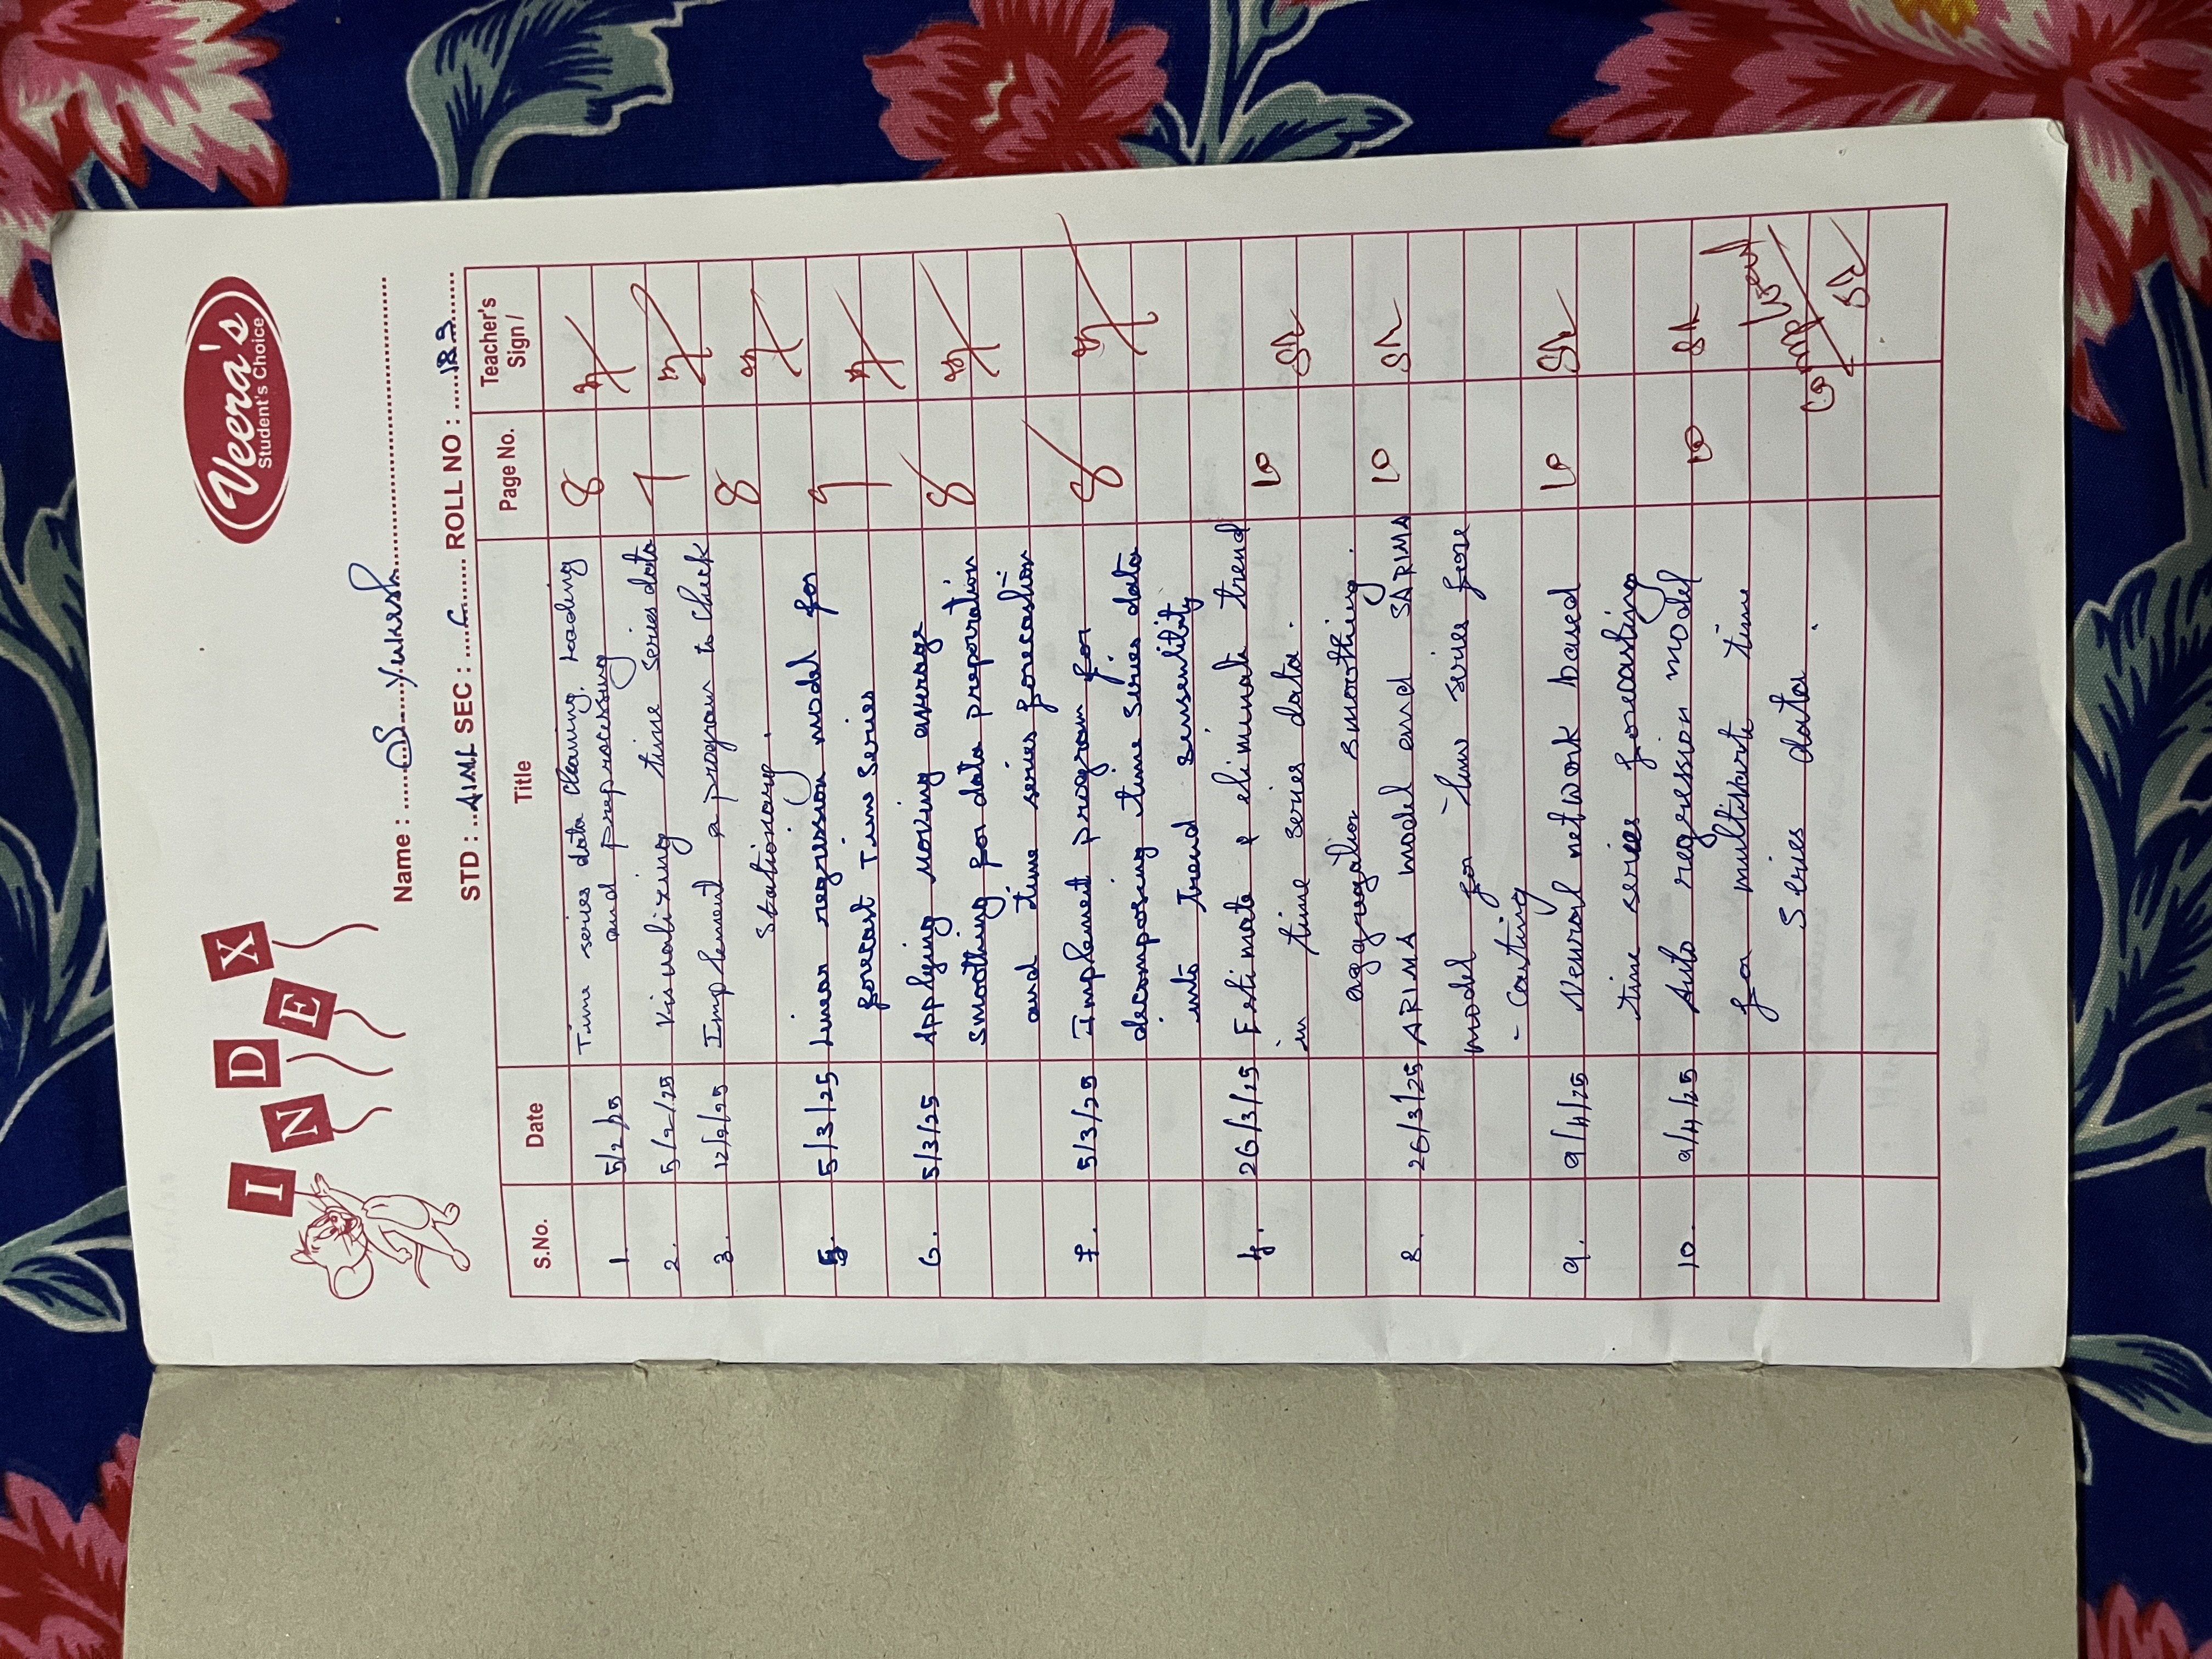 INDEX
Veera's
Student's Choice
Name : S. Yukesh
STD : AIML SEC : C ROLL NO : 189
S.No. Date Title Page No. Teacher's Sign /
1. 5/2/25 Time series data cleaning, Loading 8
and preprocessing
2. 5/2/25 Visualizing time series data
3. 12/2/25 Implement a program to check 8
Stationary.
5. 5/3/25 Linear regression model for 9
forecast Time Series
6. 5/3/25 Applying Moving average 8
smoothing for data preporration
and time series forecastion
7. 5/3/25 Implement program for 8
decomposing time series data
into trend
4. 26/3/25 Estimate & eliminate trend 10
in time series data.
aggregation smoothing.
8. 26/3/25 ARIMA model and SARIMA 10
model for time series fore
- casting
9. 9/4/25 Neural network based 10
time series forecasting
10. 9/4/25 Auto regression model 10
for multivarte time
Series data.